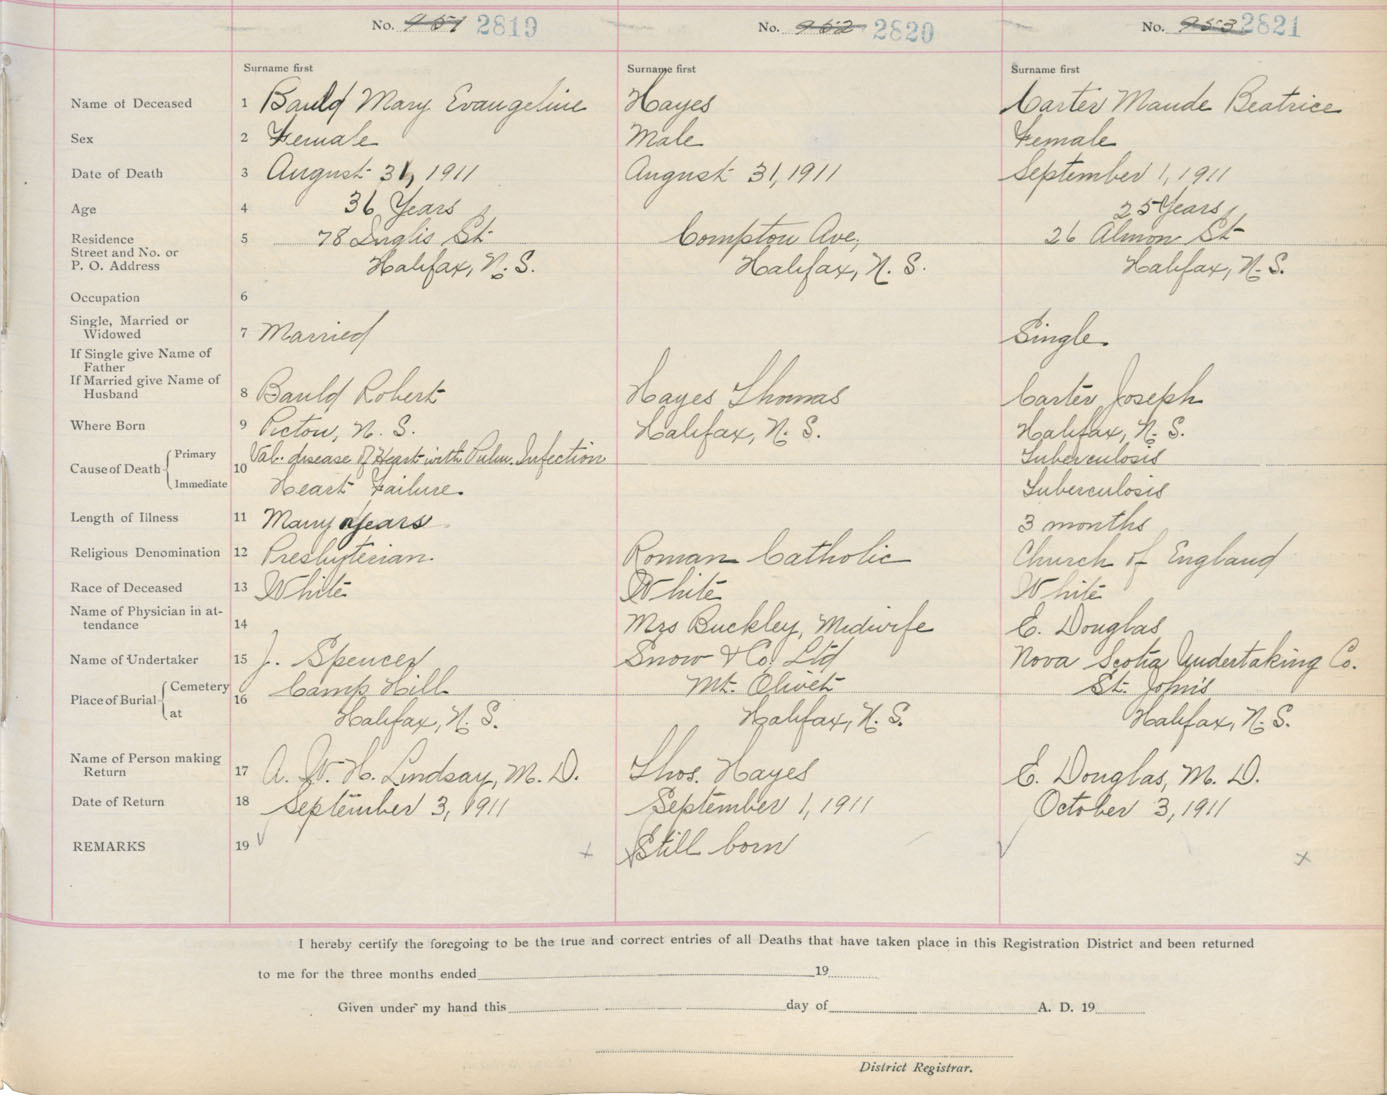 No. 951 2819 No. 952 2820 No. 953 2821
Surname first Surname first Surname first
Name of Deceased 1 Bauld Mary Evangeline Hayes Carter Maude Beatrice
Sex 2 Female Male Female
Date of Death 3 August 31, 1911 August 31, 1911 September 1, 1911
Age 4 36 Years 25 Years
Residence 5 78 Inglis St Compton Ave, 26 Almon St
Street and No. or
P. O. Address Halifax, N. S. Halifax, N. S. Halifax, N. S.
Occupation 6
Single, Married or
Widowed 7 Married Single.
If Single give Name of
Father
If Married give Name of
Husband 8 Bauld Robert Hayes Thomas Carter Joseph
Where Born 9 Pictou, N. S. Halifax, N. S. Halifax, N. S.
Cause of Death Primary 10 Val. disease of Heart with Pulm. Infection Tuberculosis
Immediate Heart Failure. Tuberculosis
Length of Illness 11 Many years 3 months
Religious Denomination 12 Presbyterian. Roman Catholic Church of England
Race of Deceased 13 White White White
Name of Physician in at-
tendance 14 Mrs Buckley, Midwife E. Douglas
Name of Undertaker 15 J. Spencer Snow & Co. Ltd Nova Scotia Undertaking Co.
Place of Burial Cemetery 16 Camp Hill Mt. Olivet St. John's
at Halifax, N. S. Halifax, N. S. Halifax, N. S.
Name of Person making
Return 17 A. W. H. Lindsay, M. D. Thos. Hayes E. Douglas, M. D.
Date of Return 18 September 3, 1911 September 1, 1911 October 3, 1911
REMARKS 19 Still born
I hereby certify the foregoing to be the true and correct entries of all Deaths that have taken place in this Registration District and been returned
to me for the three months ended 19
Given under my hand this day of A. D. 19
District Registrar.